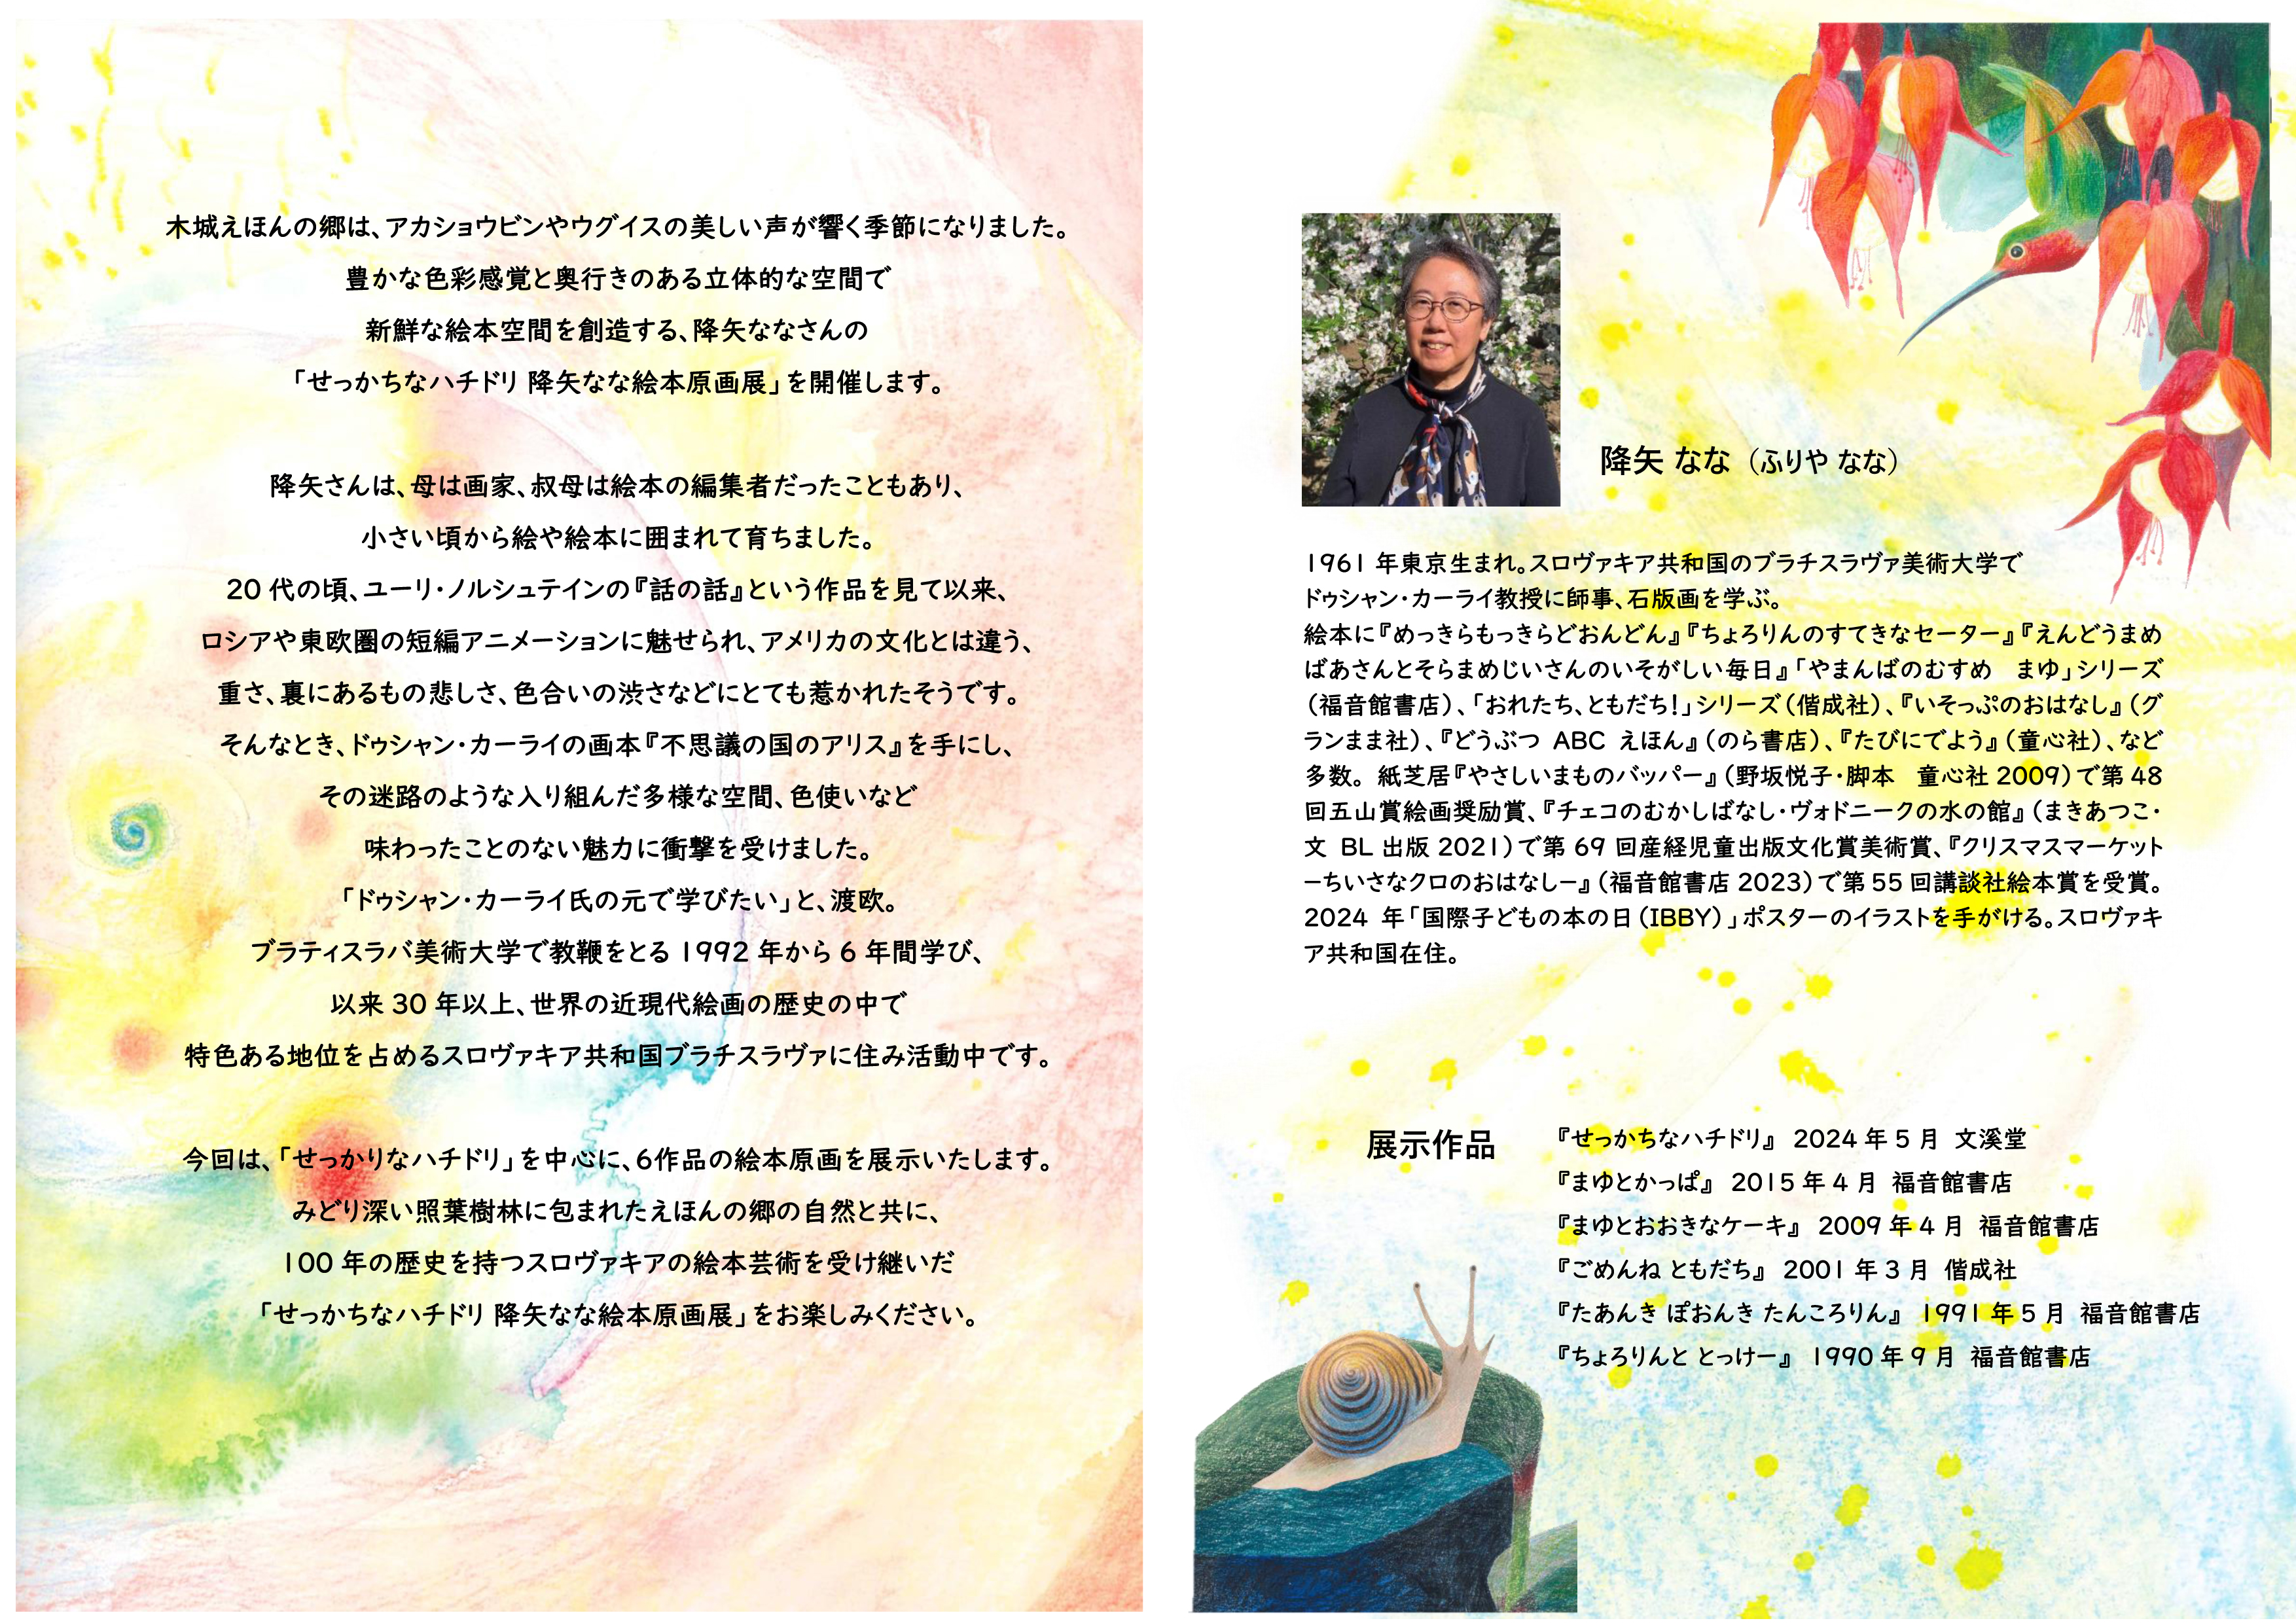 木城えほんの郷は、アカショウビンやウグイスの美しい声が響く季節になりました。
豊かな色彩感覚と奥行きのある立体的な空間で
新鮮な絵本空間を創造する、降矢ななさんの
「せっかちなハチドリ 降矢なな絵本原画展」を開催します。
降矢さんは、母は画家、叔母は絵本の編集者だったこともあり、
小さい頃から絵や絵本に囲まれて育ちました。
20 代の頃、ユーリ・ノルシュテインの『話の話』という作品を見て以来、
ロシアや東欧圏の短編アニメーションに魅せられ、アメリカの文化とは違う、
重さ、裏にあるもの悲しさ、色合いの渋さなどにとても惹かれたそうです。
そんなとき、ドゥシャン・カーライの画本『不思議の国のアリス』を手にし、
その迷路のような入り組んだ多様な空間、色使いなど
味わったことのない魅力に衝撃を受けました。
「ドゥシャン・カーライ氏の元で学びたい」と、渡欧。
ブラティスラバ美術大学で教鞭をとる 1992 年から 6 年間学び、
以来 30 年以上、世界の近現代絵画の歴史の中で
特色ある地位を占めるスロヴァキア共和国ブラチスラヴァに住み活動中です。
今回は、「せっかりなハチドリ」を中心に、6作品の絵本原画を展示いたします。
みどり深い照葉樹林に包まれたえほんの郷の自然と共に、
100 年の歴史を持つスロヴァキアの絵本芸術を受け継いだ
「せっかちなハチドリ 降矢なな絵本原画展」をお楽しみください。
降矢 なな（ふりや なな）
1961 年東京生まれ。スロヴァキア共和国のブラチスラヴァ美術大学で
ドゥシャン・カーライ教授に師事、石版画を学ぶ。
絵本に『めっきらもっきらどおんどん』『ちょろりんのすてきなセーター』『えんどうまめ
ばあさんとそらまめじいさんのいそがしい毎日』「やまんばのむすめ　まゆ」シリーズ
（福音館書店）、「おれたち、ともだち！」シリーズ（偕成社）、『いそっぷのおはなし』（グ
ランまま社）、『どうぶつ ABC えほん』（のら書店）、『たびにでよう』（童心社）、など
多数。 紙芝居『やさしいまものバッパー』（野坂悦子・脚本　童心社 2009）で第 48
回五山賞絵画奨励賞、『チェコのむかしばなし・ヴォドニークの水の館』（まきあつこ・
文 BL 出版 2021）で第 69 回産経児童出版文化賞美術賞、『クリスマスマーケット
－ちいさなクロのおはなし－』（福音館書店 2023）で第 55 回講談社絵本賞を受賞。
2024 年「国際子どもの本の日（IBBY）」ポスターのイラストを手がける。スロヴァキ
ア共和国在住。
展示作品
『せっかちなハチドリ』 2024 年 5 月 文溪堂
『まゆとかっぱ』 2015 年 4 月 福音館書店
『まゆとおおきなケーキ』 2009 年 4 月 福音館書店
『ごめんね ともだち』 2001 年 3 月 偕成社
『たあんき ぽおんき たんころりん』 1991 年 5 月 福音館書店
『ちょろりんと とっけー』 1990 年 9 月 福音館書店